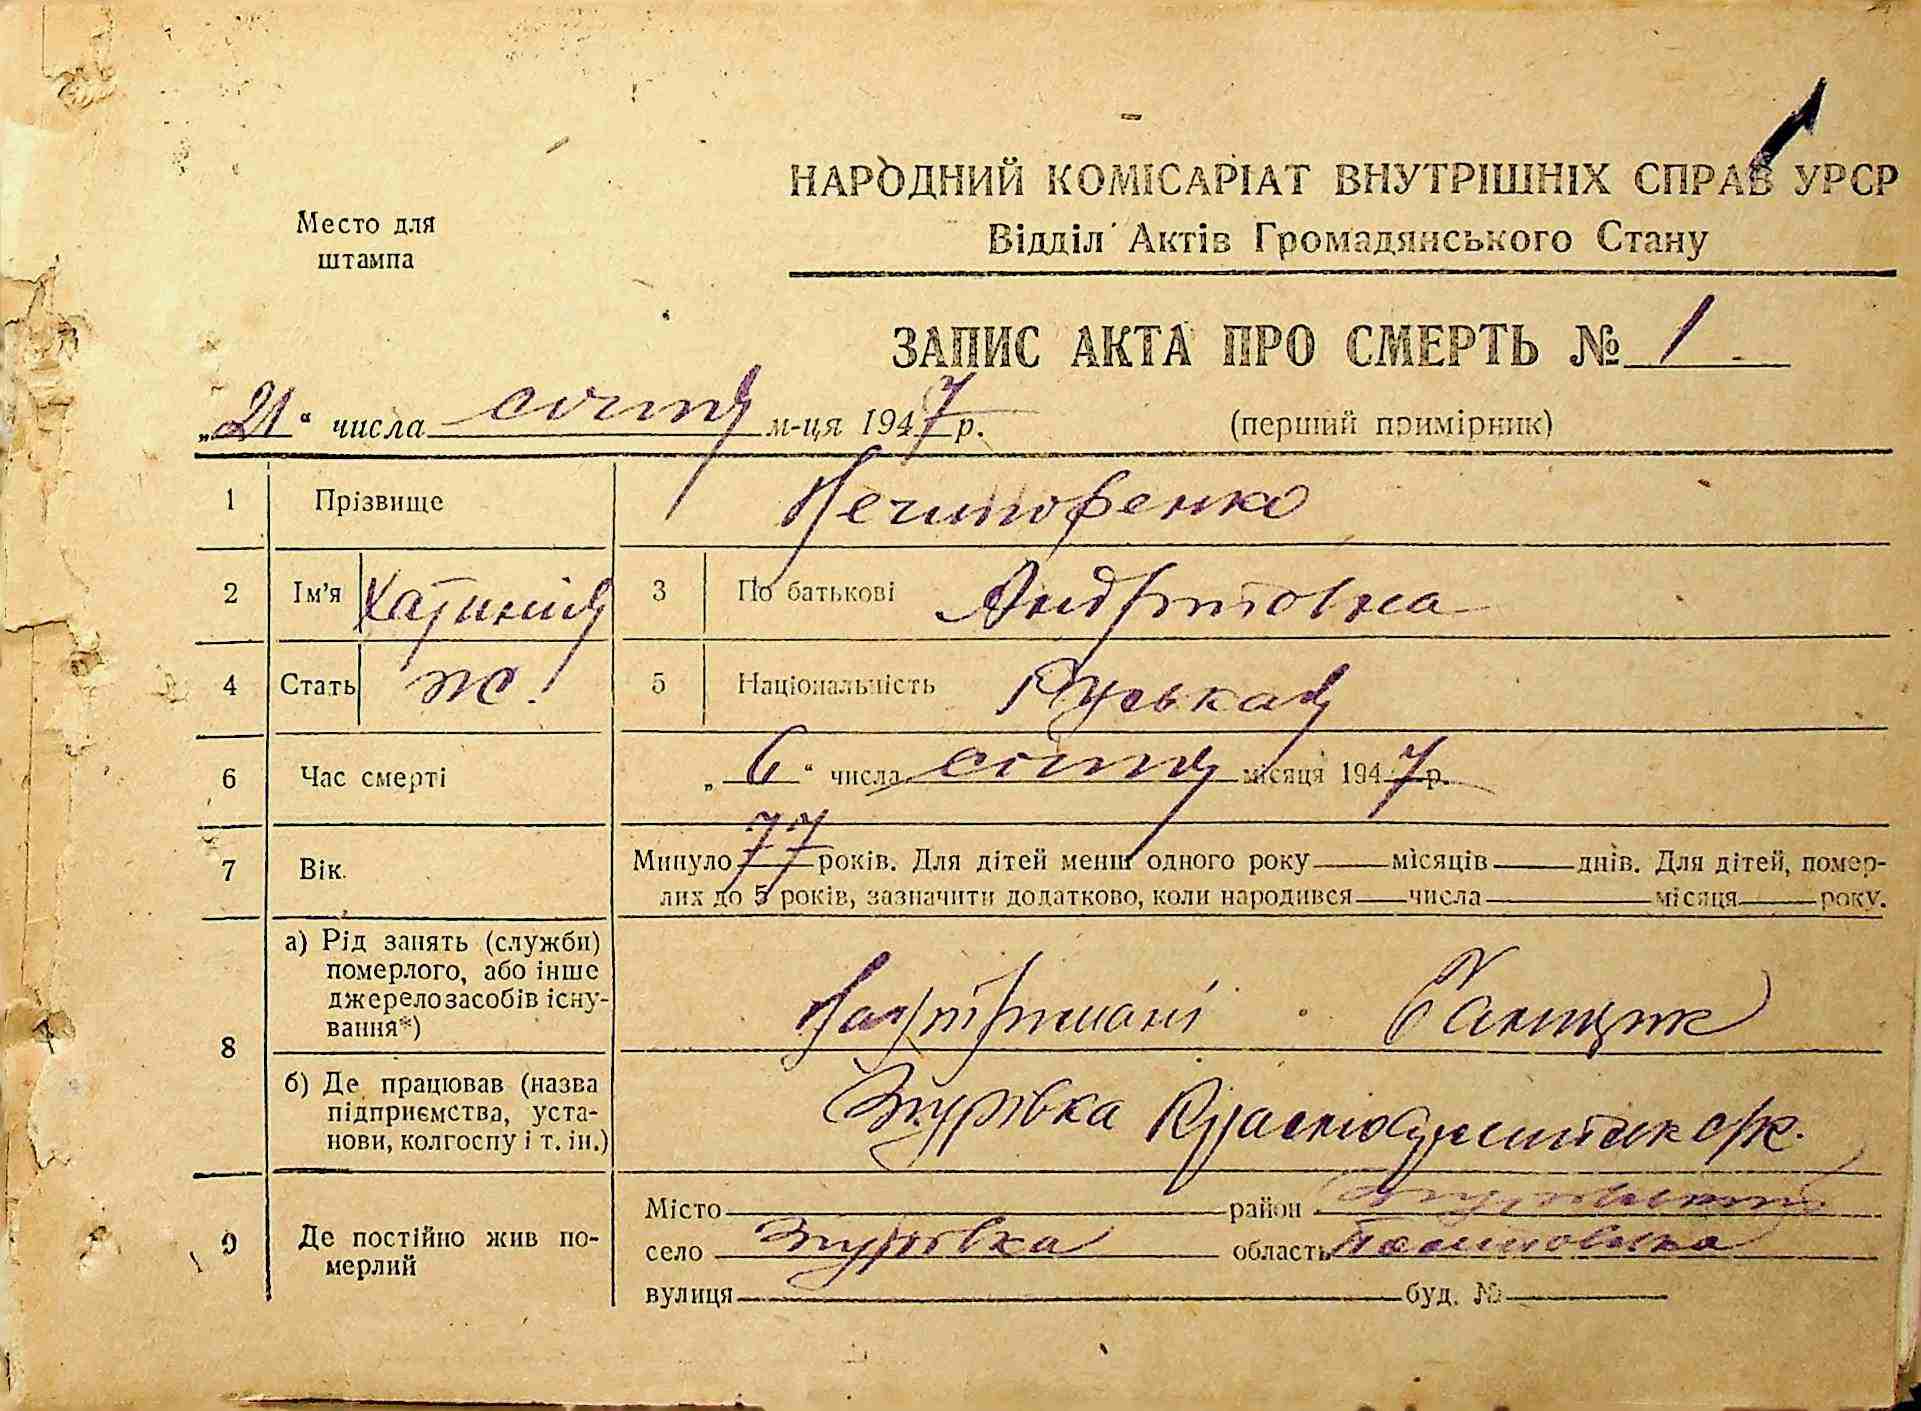 НАРОДНИЙ КОМІСАРІАТ ВНУТРІШНІХ СПРАВ УРСР
Відділ Актів Громадянського Стану
Место для
штампа
ЗАПИС АКТА ПРО СМЕРТЬ № 1
„21“ числа січня м-ця 1947 р.
(перший примірник)
1 Прізвище Нечипоренко
2 Ім'я 3 По батькові
4 Стать ж. 5 Національність Руськая
6 Час смерті „6“ числа січня місяця 1947 р.
7 Вік. Минуло 77 років. Для дітей менш одного року — місяців — днів. Для дітей, помер-
лих до 5 років, зазначити додатково, коли народився — числа — місяця — року.
8 а) Рід занять (служби)
померлого, або інше
джерело засобів існу-
вання*)
б) Де працював (назва
підприємства, уста-
нови, колгоспу і т. ін.)
Згурівка
9 Де постійно жив по-
мерлий
Місто район Згурівський
село Згурівка область Полтавська
вулиця буд. №